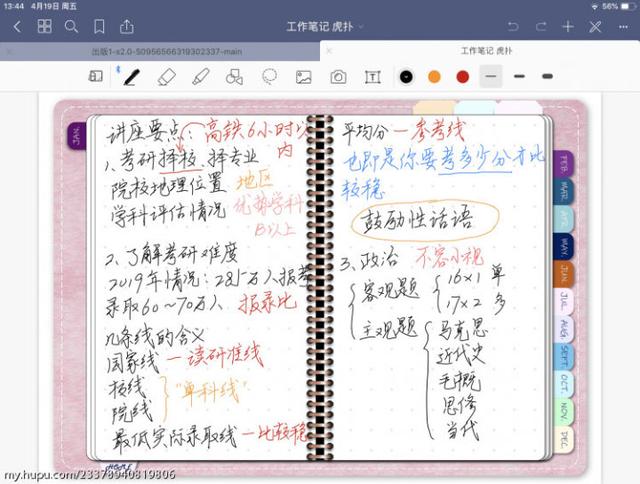 13:44 4月19日 周五
56%
工作笔记 虎扑
出版1-s2.0-S0956566319302337-main
工作笔记 虎扑
JAN.
讲座要点: 高铁6小时以
内
1、考研择校、择专业
院校地理位置 地区
学科评估情况 优势学科
B以上
2、了解考研难度
2019年情况: 285万人报考
录取60~70万人 报录比
几条线的含义
国家线 — 读研准线
校线
院线 "单科线"
最低实际录取线 — 比较稳
平均分 — 参考线
也即是你要考多少分才比
较稳
鼓励性话语
3、政治 不容小视
客观题 16×1 单
17×2 多
主观题 马克思
近代史
毛概
思修
当代
FEB.
MAR.
APR.
MAY.
JUN.
JUL.
AUG.
SEPT.
OCT.
NOV.
DEC.
my.hupu.com/23378940819806